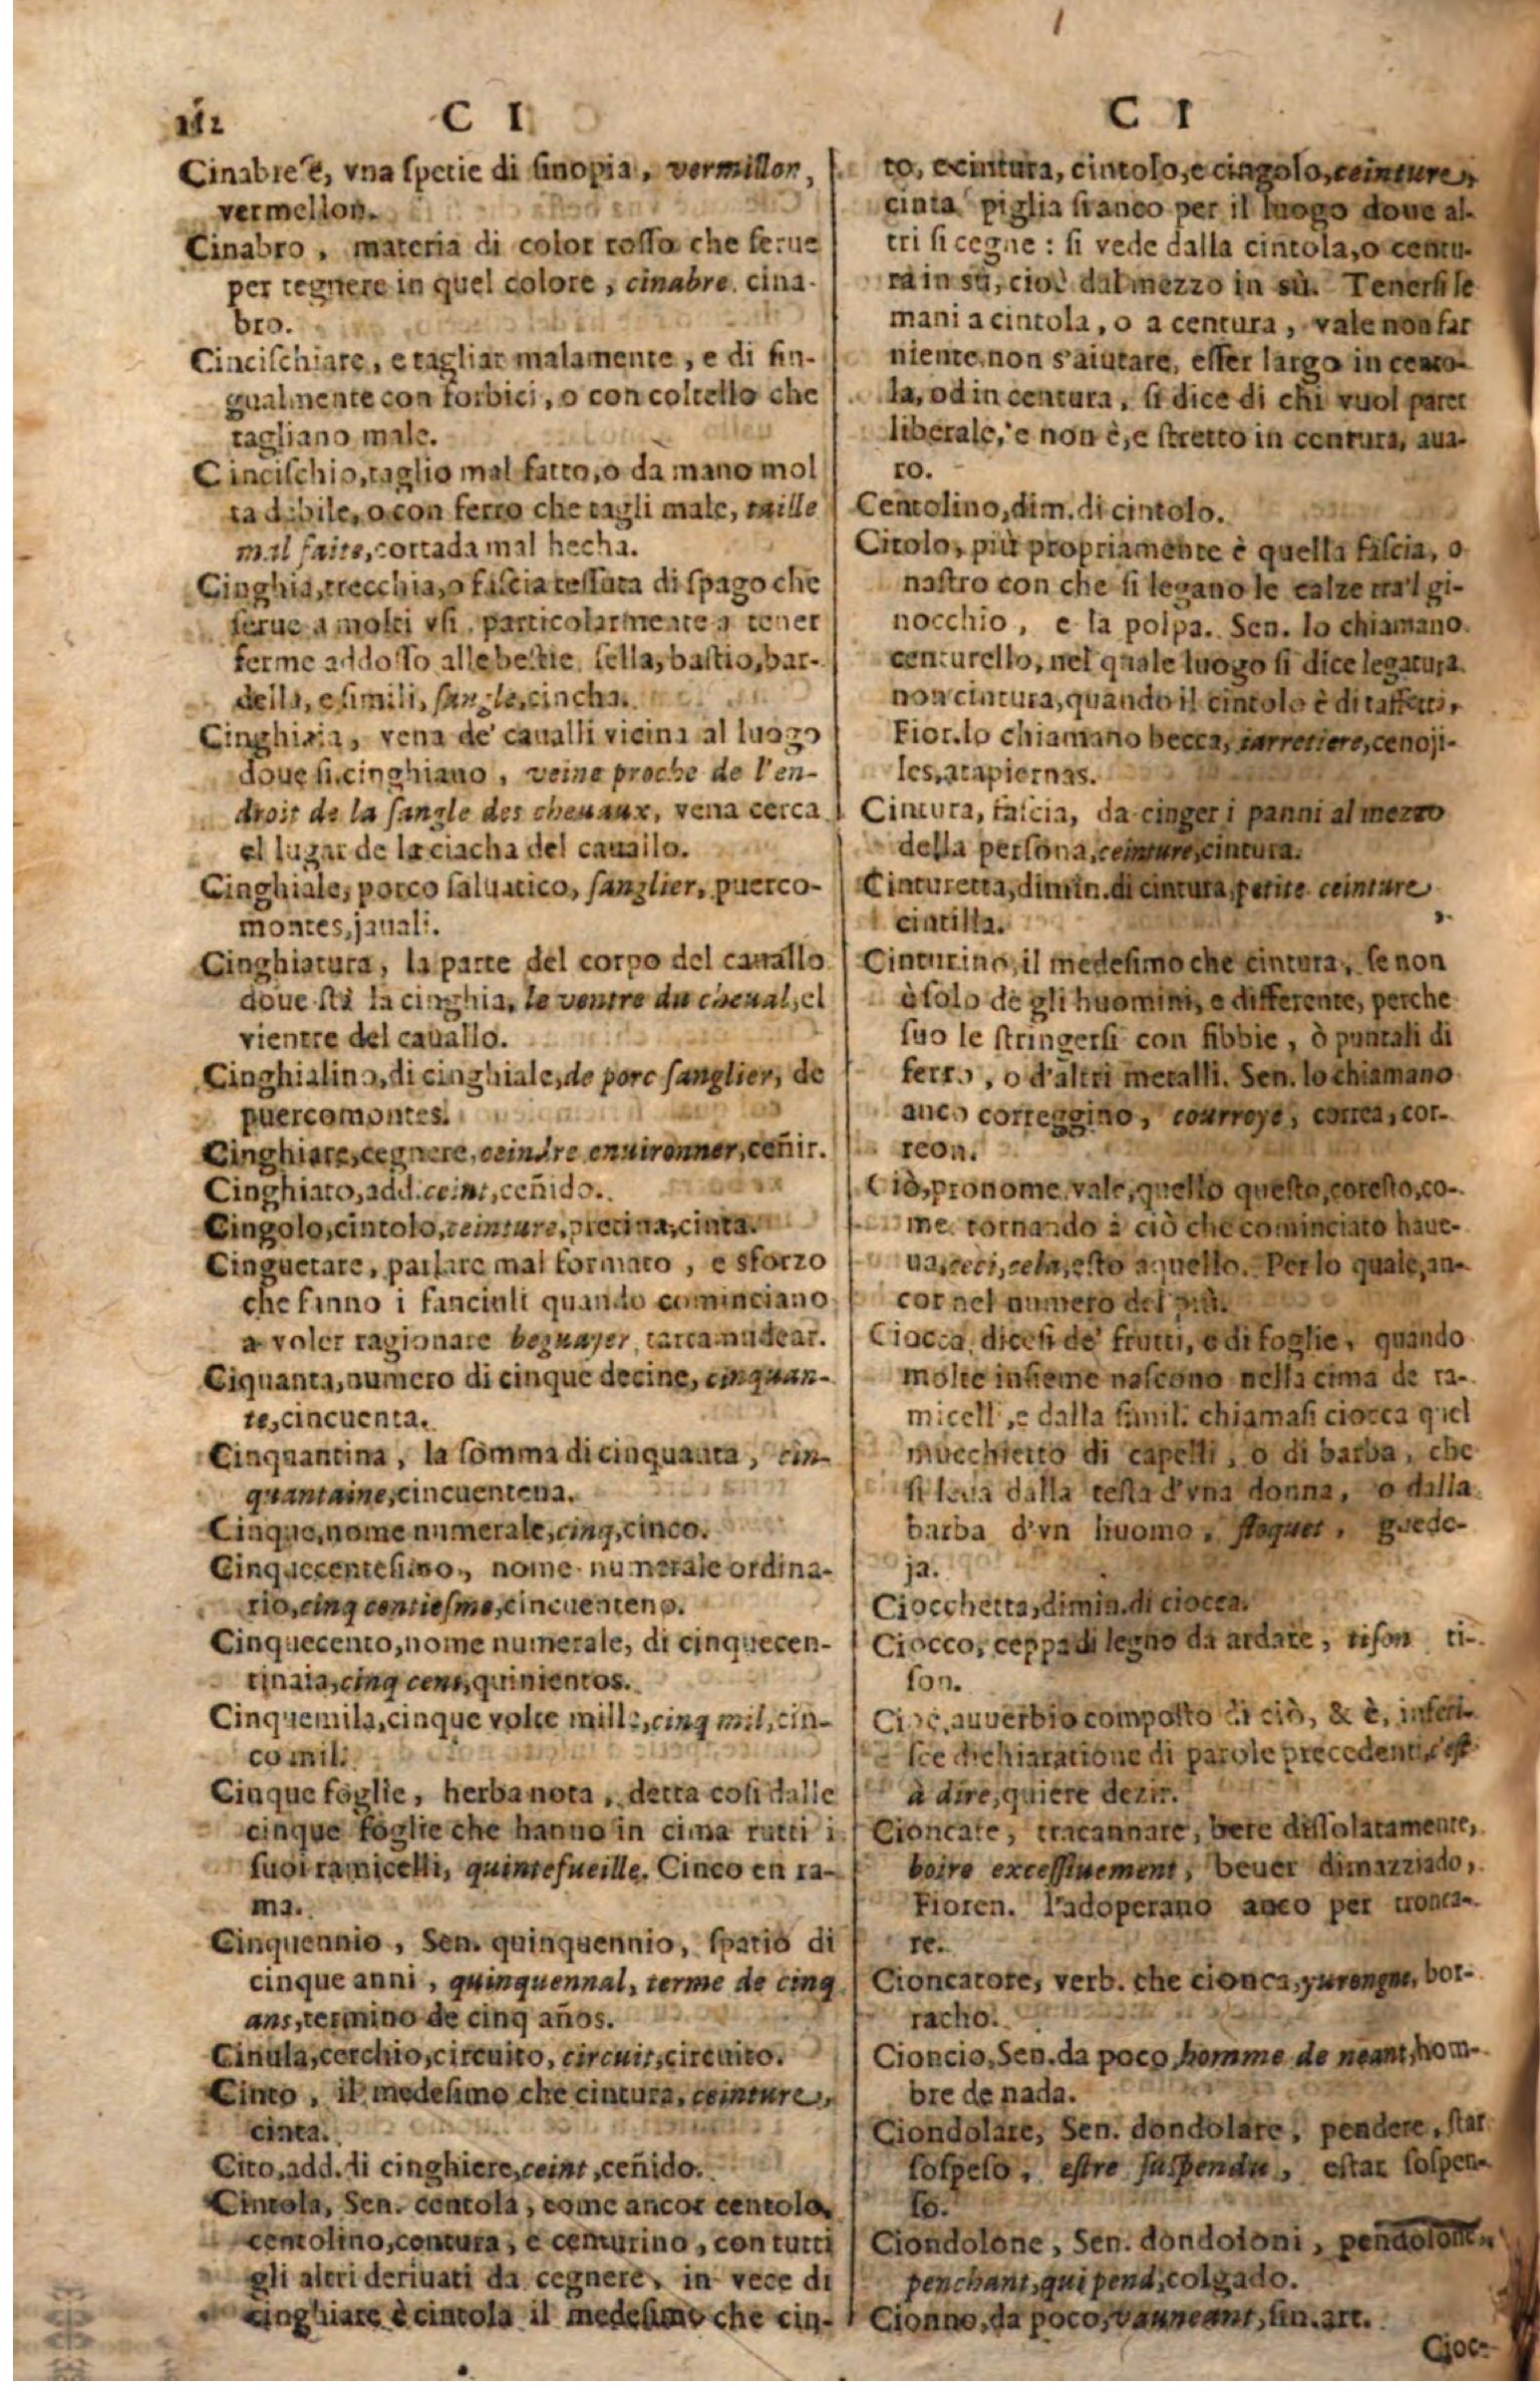 C I
Cinabre è, vna ſpetie di ſinopia, vermillon,
vermellon.
Cinabro, materia di color roſſo che ſerue
per tegnere in quel colore, cinabre. cina-
bro.
Cinciſchiare, e tagliar malamente, e di ſin-
gualmente con forbici, o con coltello che
tagliano male.
Cinciſchio, taglio mal fatto, o da mano mol
ta debile, o con ferro che tagli male, taille
mal faite, cortada mal hecha.
Cinghia, trecchia, o faſcia teſſuta di ſpago che
ſerue a molti vſi, particolarmente a tener
ferme addoſſo alle beſtie ſella, baſtio, bar-
della, e ſimili, ſangle, cincha.
Cinghiaia, vena de' caualli vicina al luogo
doue ſi cinghiano, veine proche de l'en-
droit de la ſangle des cheuaux, vena cerca
el lugar de la ciacha del cauailo.
Cinghiale, porco ſaluatico, ſanglier, puerco-
montes, jauali.
Cinghiatura, la parte del corpo del cauallo
doue ſtà la cinghia, le ventre du cheual, el
vientre del cauallo.
Cinghialino, di cinghiale, de porc ſanglier, de
puercomontes.
Cinghiare, cegnere, ceindre enuironner, ceñir.
Cinghiato, add. ceint, ceñido.
Cingolo, cintolo, ceinture, pretina, cinta.
Cinguetare, parlare mal formato, e sforzo
che fanno i fanciuli quando cominciano
a voler ragionare begnayer, tartamudear.
Ciquanta, numero di cinque decine, cinquan-
te, cincuenta.
Cinquantina, la ſomma di cinquanta, cin-
quantaine, cincuentena.
Cinque, nome numerale, cinq, cinco.
Cinquecenteſimo, nome numerale ordina-
rio, cinq centieſme, cincuenteno.
Cinquecento, nome numerale, di cinquecen-
tinaia, cinq cent, quinientos.
Cinquemila, cinque volte mille, cinq mil, cin-
co mil.
Cinque foglie, herba nota, detta coſi dalle
cinque foglie che hanno in cima tutti i
ſuoi ramicelli, quintefueille. Cinco en ra-
ma.
Cinquennio, Sen. quinquennio, ſpatio di
cinque anni, quinquennal, terme de cinq
ans, termino de cinq años.
Cinula, cerchio, circuito, circuit, circuito.
Cinto, il medeſimo che cintura, ceinture,
cinta.
Cito, add. di cinghiere, ceint, ceñido.
Cintola, Sen. centola, come ancor centolo,
centolino, centura, e centurino, con tutti
gli altri deriuati da cegnere, in vece di
cinghiare è cintola il medeſimo che cin-
C I
to, e cintura, cintolo, e cingolo, ceinture,
cinta piglia ſianco per il luogo doue al-
tri ſi cegne: ſi vede dalla cintola, o centu-
ra in sù, cioè dal mezzo in sù. Tenerſi le
mani a cintola, o a centura, vale non far
niente, non s'aiutare, eſſer largo in cento-
la, od in centura, ſi dice di chi vuol parer
liberale, e non è, e ſtretto in centura, aua-
ro.
Centolino, dim. di cintolo.
Citolo, più propriamente è quella faſcia, o
naſtro con che ſi legano le calze tra'l gi-
nocchio, e la polpa. Sen. lo chiamano
centurello, nel quale luogo ſi dice legatura
non cintura, quando il cintolo è di taffetti,
Fior. lo chiamano becca, jarretiere, cenoji-
les, atapiernas.
Cintura, faſcia, da cinger i panni al mezzo
della perſona, ceinture, cintura.
Cinturetta, dimin. di cintura, petite ceinture,
cintilla.
Cinturino, il medeſimo che cintura, ſe non
è ſolo de gli huomini, e differente, perche
ſuo le ſtringerſi con fibbie, ò puntali di
ferro, o d'altri metalli. Sen. lo chiamano
anco correggino, courroye, correa, cor-
reon.
Ciò, pronome, vale, quello queſto, coteſto, co-
me tornando à ciò che cominciato haue-
ua, ceci, cela, eſto aquello. Per lo quale, an-
cor nel numero del più.
Ciocca, diceſi de' frutti, e di foglie, quando
molte inſieme naſcono nella cima de ra-
micelli, e dalla ſimil. chiamaſi ciocca quel
mucchietto di capelli, o di barba, che
ſi leua dalla teſta d'vna donna, o dalla
barba d'vn huomo, floquet, guede-
ja.
Ciocchetta, dimin. di ciocca.
Ciocco, ceppa di legno da ardare, tiſon ti-
ſon.
Cioè, auuerbio compoſto di ciò, & è, inferi-
ſce dichiaratione di parole precedenti, c'eſt
à dire, quiere dezir.
Cioncare, tracannare, bere diſſolatamente,
boire exceſſiuement, beuer dimazziado,
Fioren. l'adoperano anco per tronca-
re.
Cioncatore, verb. che cionca, yurongne, bor-
racho.
Cioncio, Sen. da poco, homme de neant, hom-
bre de nada.
Ciondolare, Sen. dondolare, pendere, ſtar
ſoſpeſo, eſtre ſuſpendu, eſtar ſoſpen-
ſo.
Ciondolone, Sen. dondoloni, pendolone,
penchant, qui pend, colgado.
Cionno, da poco, vauneant, ſin. art.
Cioc-